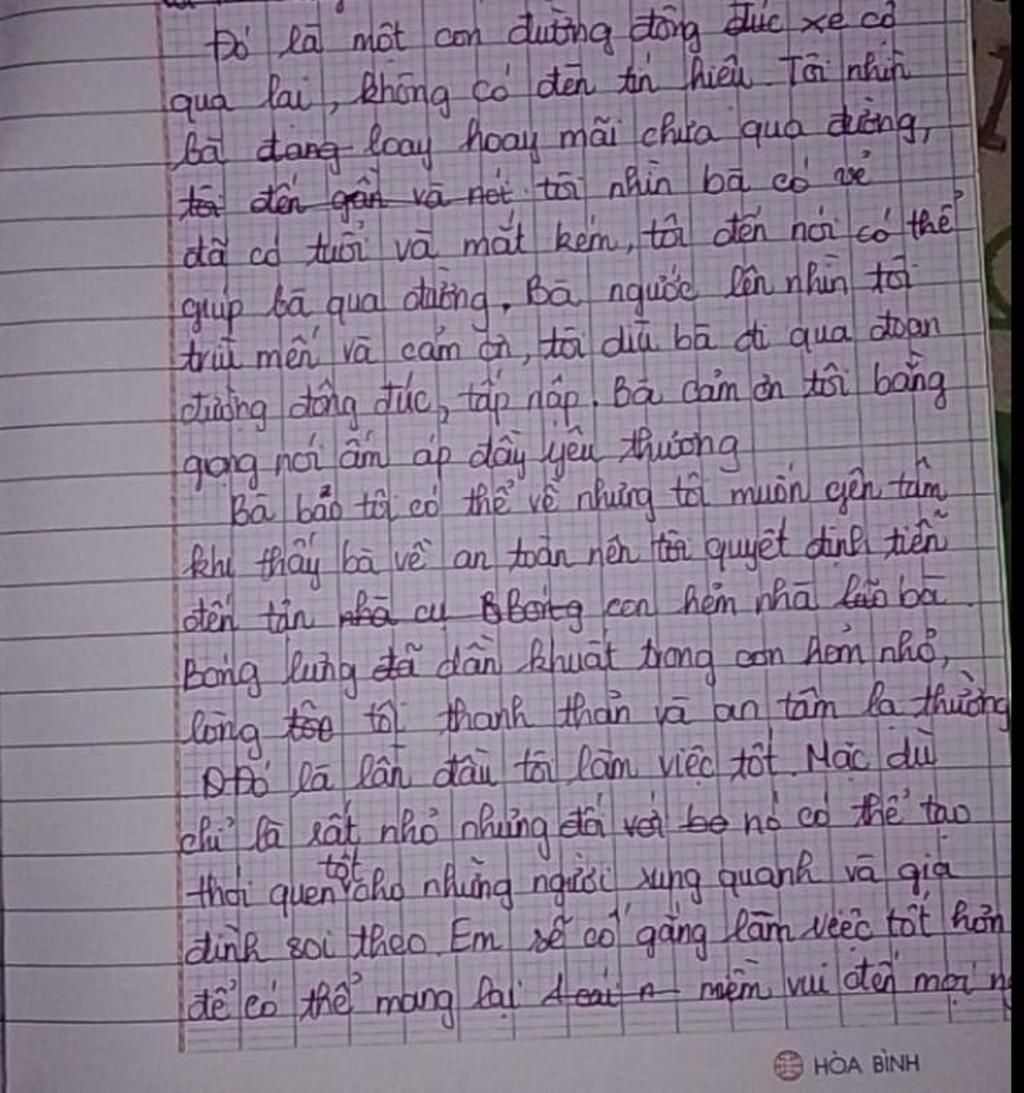 Đó là một con đường đông đúc xe cộ
qua lại, không có đèn tín hiệu. Tôi nhìn
bà đang loay hoay mãi chưa qua đường,
tôi đến gần và nét tôi nhìn bà có vẻ
đã có tuổi và mắt kém, tôi đến nói có thể
giúp bà qua đường. Bà ngước lên nhìn tôi
trìu mến và cảm ơn, tôi dìu bà đi qua đoạn
đường đông đúc, tấp nập. Bà cảm ơn tôi bằng
giọng nói ấm áp đầy yêu thương
Bà bảo tôi có thể về nhưng tôi muốn yên tâm
khi thấy bà về an toàn nên tôi quyết định tiễn
đến tận nhà cụ Bbóng con hẻm nhà bà.
Bóng lưng đã dần khuất trong con hẻm nhỏ,
lòng tôi thanh thản và an tâm lạ thường
Đó là lần đầu tôi làm việc tốt. Mặc dù
chỉ là rất nhỏ nhưng đối với bo nó có thể tạo
thói quen tốt cho những người xung quanh và gia
đình soi theo. Em sẽ cố gắng làm việc tốt hơn
để có thể mang lại mềm vui đến mọi n
HÒA BÌNH